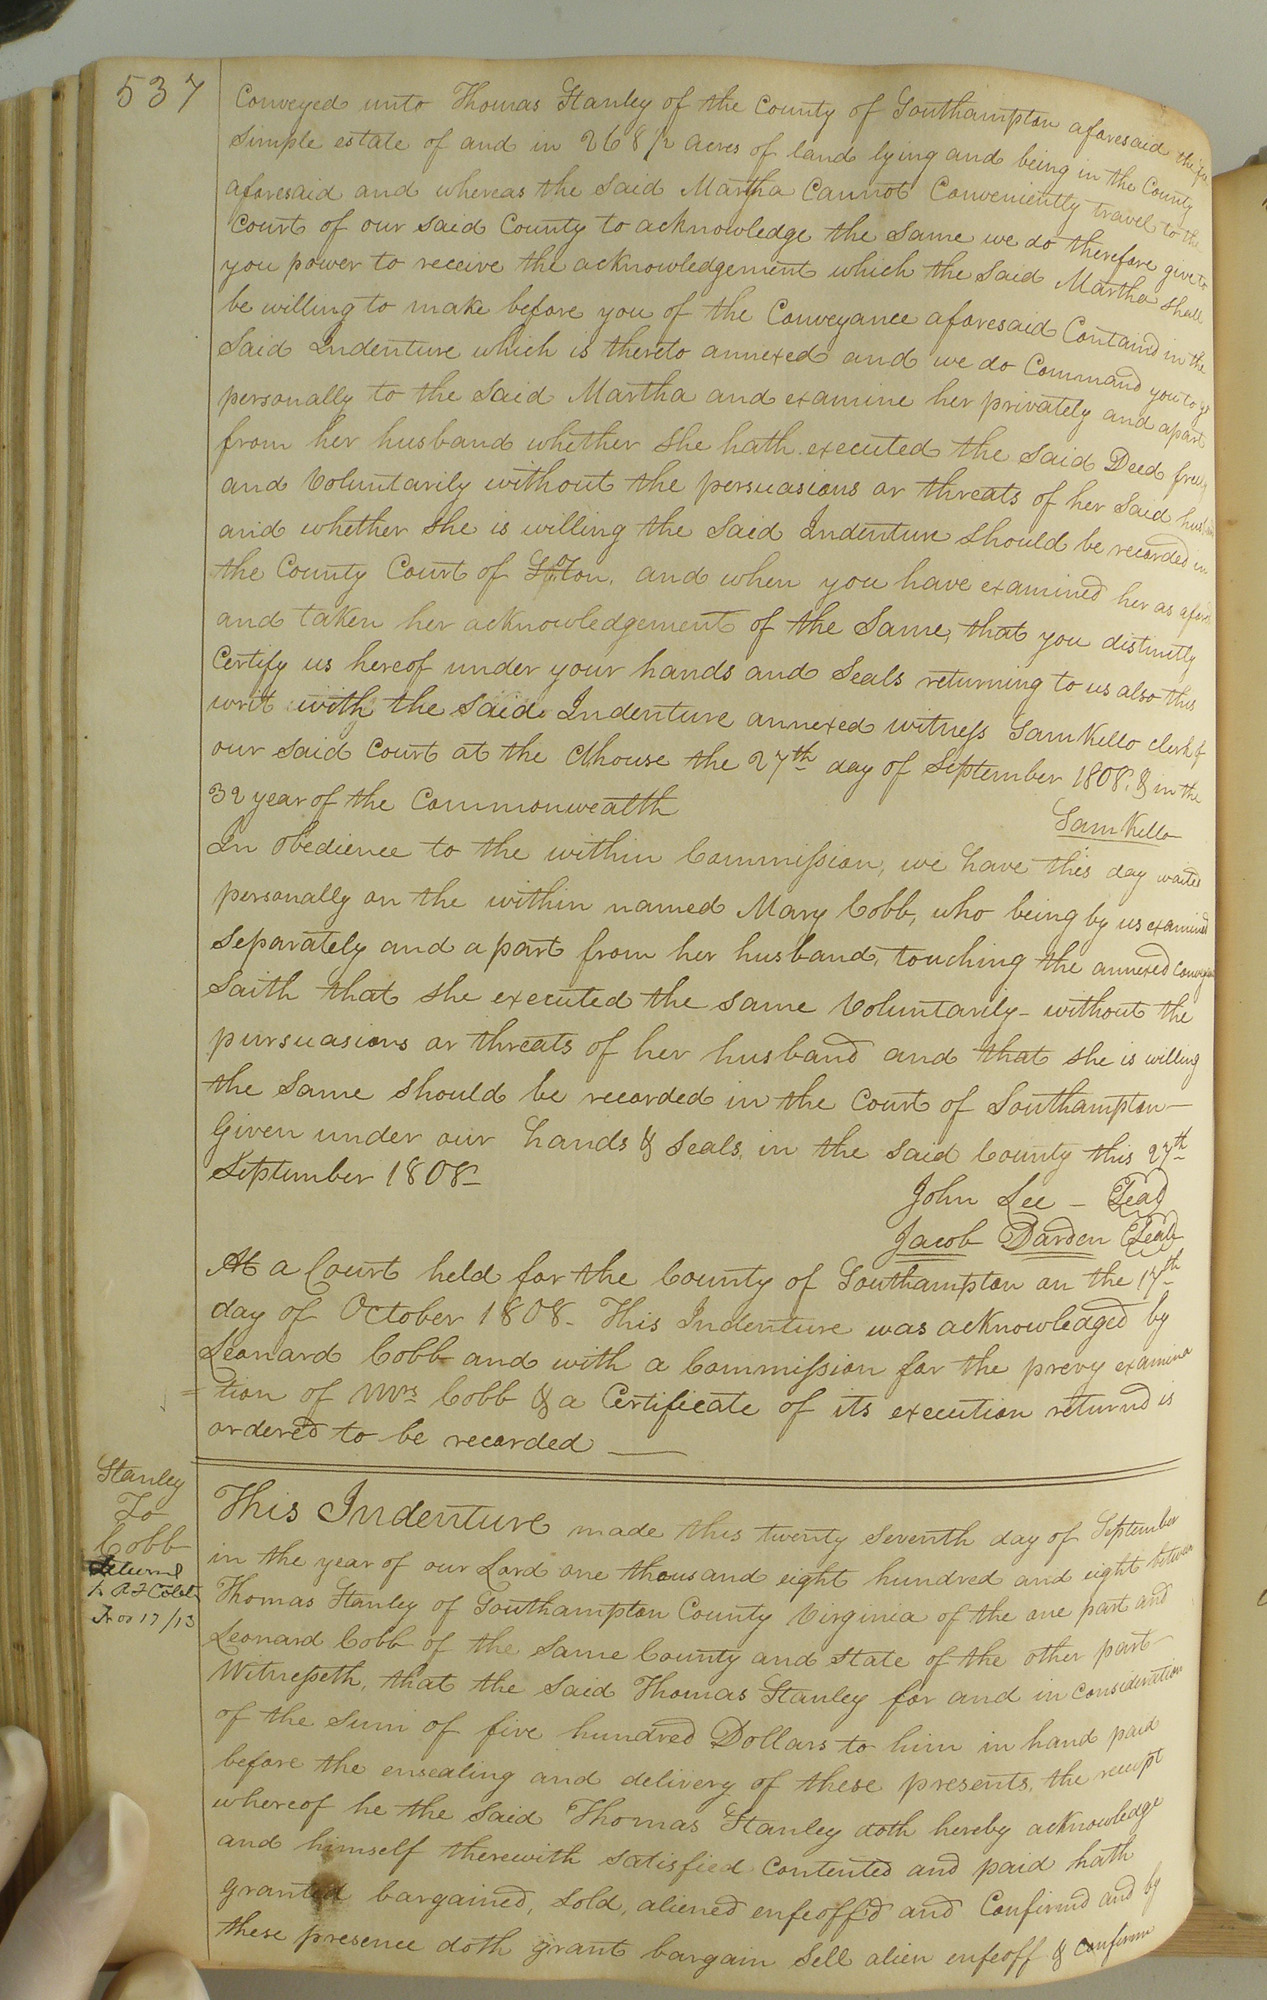 537
Conveyed unto Thomas Stanley of the County of Southampton aforesaid the fee
Simple estate of and in 268 1/2 acres of land lying and being in the County
aforesaid and whereas the said Martha Cannot Conveniently travel to the
Court of our said County to acknowledge the same we do therefore give to
you power to receive the acknowledgement which the said Martha shall
be willing to make before you of the Conveyance aforesaid Containd in the
Said Indenture which is thereto annexed and we do Command you to go
personally to the said Martha and examine her privately and apart
from her husband whether she hath executed the said Deed freely
and Voluntarily without the persuasions or threats of her said husband
and whether she is willing the said Indenture should be recorded in
the County Court of and when you have examined her as afores
and taken her acknowledgement of the same, that you distinctly
Certify us hereof under your hands and seals returning to us also this
writ with the said Indenture annexed witness Sam Kello clerk of
our said Court at the Cthouse the 27th day of September 1808. & in the
32 year of the Commonwealth
Sam Kello
In obedience to the within Commission, we have this day waited
personally on the within named Mary Cobb, who being by us examined
Separately and apart from her husband, touching the annexed Conveyance
Saith that she executed the same Voluntarily - without the
pursuasions or threats of her husband and that she is willing
the same should be recorded in the Court of Southampton -
Given under our hands & seals, in the said County this 27th
September 1808 -
John Lee - Seal
Jacob Darden Seal
At a Court held for the County of Southampton on the 17th
day of October 1808 - This Indenture was acknowledged by
Leonard Cobb and with a Commission for the prevy examina
=tion of Mrs Cobb & a Certificate of its execution returnd is
ordered to be recorded
Stanley
To
Cobb
Nov 17/13
This Indenture made this twenty seventh day of September
in the year of our Lord one thousand eight hundred and eight between
Thomas Stanley of Southampton County Virginia of the one part and
Leonard Cobb of the same County and state of the other part -
Witnesseth, that the said Thomas Stanley for and in consideration
of the sum of five hundred Dollars to him in hand paid
before the ensealing and delivery of these presents, the receipt
whereof he the said Thomas Stanley doth hereby acknowledge
and himself therewith satisfied contented and paid hath
granted bargained, sold, aliened enfeoff'd and Confirmd and by
these presence doth grant bargain Sell alien enfeoff & confirm